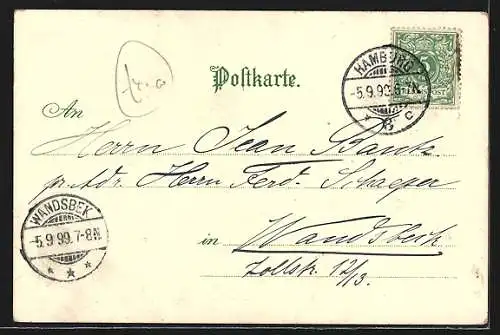 Postkarte.
HAMBURG
-5.9.99.6-7N.
* 8 c
An
Herrn Jean Bantz
pr. Adr. Herrn Ferd. Schaeper
WANDSBEK
5.9.99.7-8N
* * *
in Wandsbeck
Zollstr. 12/13.